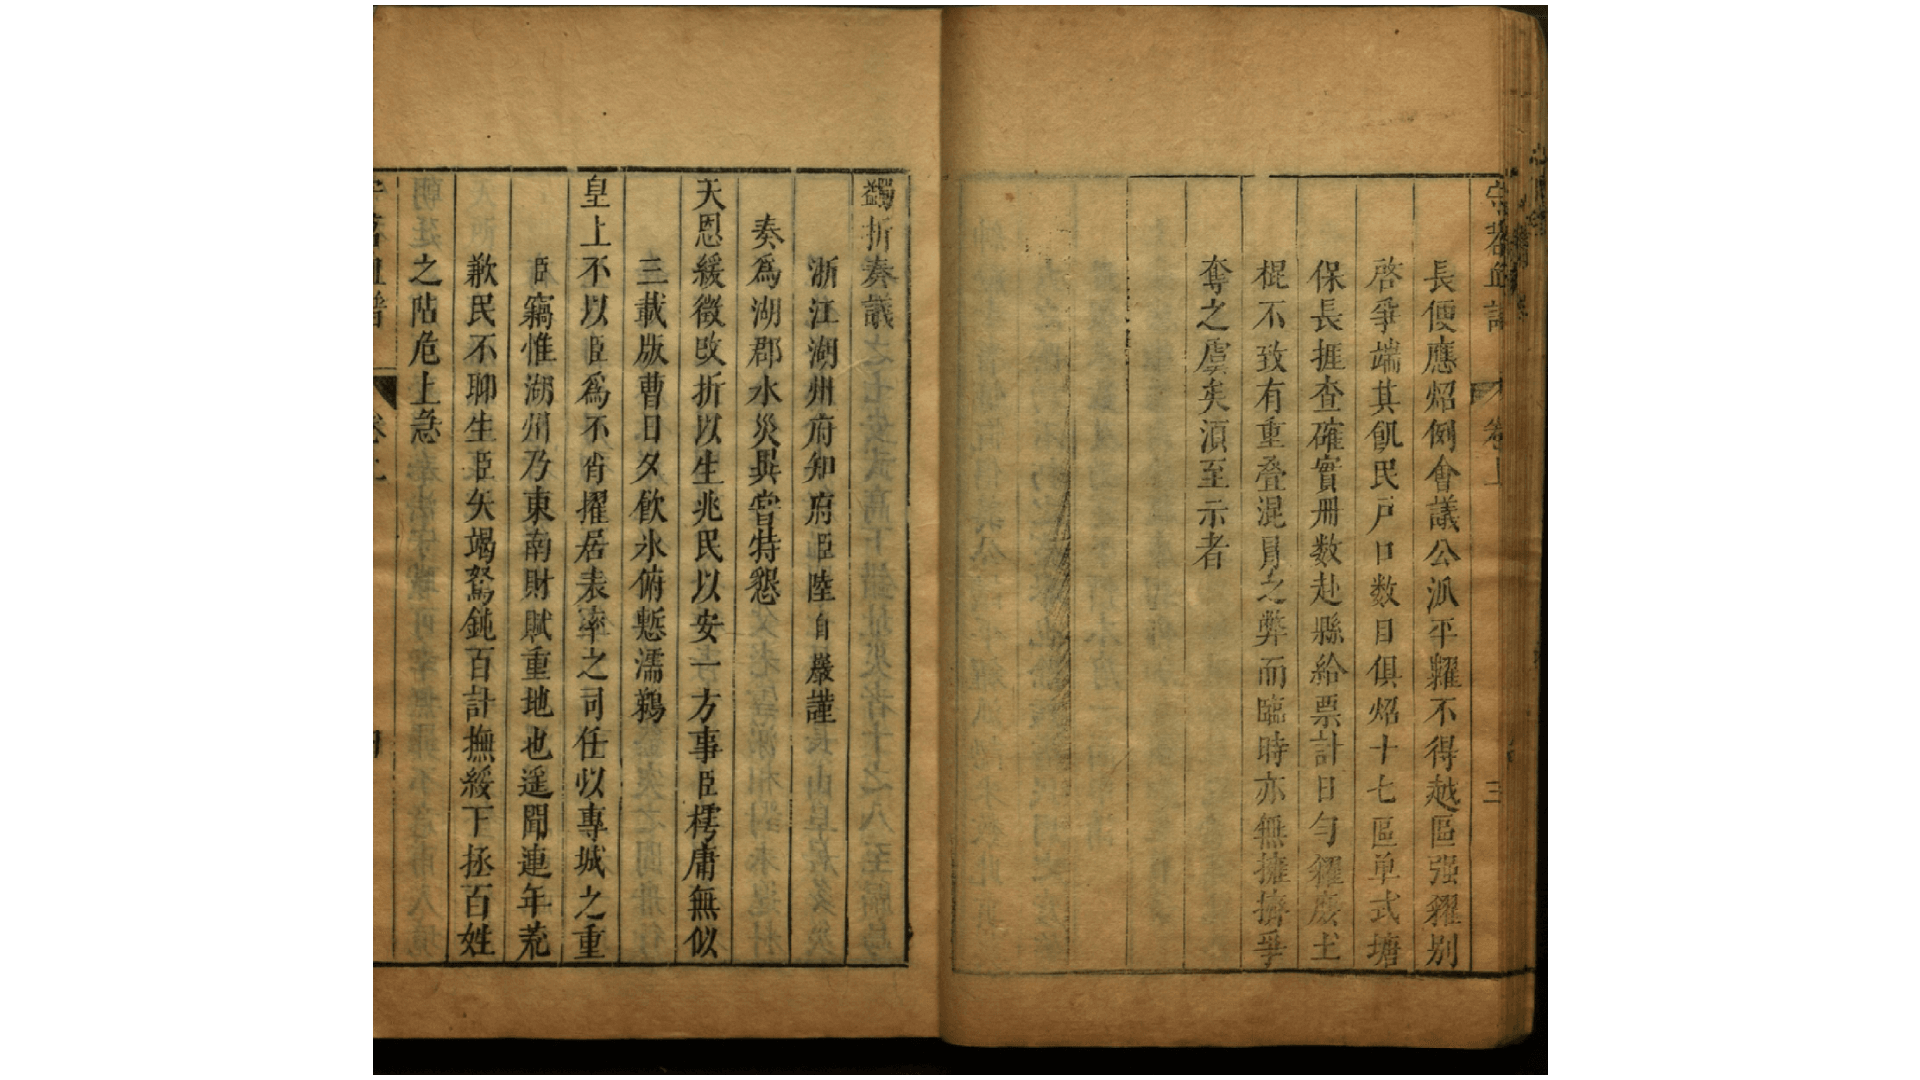 守苕 卷上 三
長便應炤例會議公派平糶不得越區强糴别
啓爭端其飢民戸口数目俱炤十七區单式塘
保長挨查確實冊数赴縣給票計日匀糴庻土
棍不致有重叠混冐之弊而臨時亦無擁擠爭
奪之虞矣湏至示者
蠲折奏議
浙江湖州府知府臣陸自巖謹
奏爲湖郡水災異嘗特懇
天恩緩徵改折以生兆民以安一方事臣樗庸無似
三載版曹日夕飲氷俯慙濡鵜
皇上不以臣爲不肖擢居表率之司任以專城之重
臣竊惟湖州乃東南財賦重地也遥聞連年荒
歉民不聊生臣矢竭駑鈍百計撫綏下拯百姓
之阽危上急